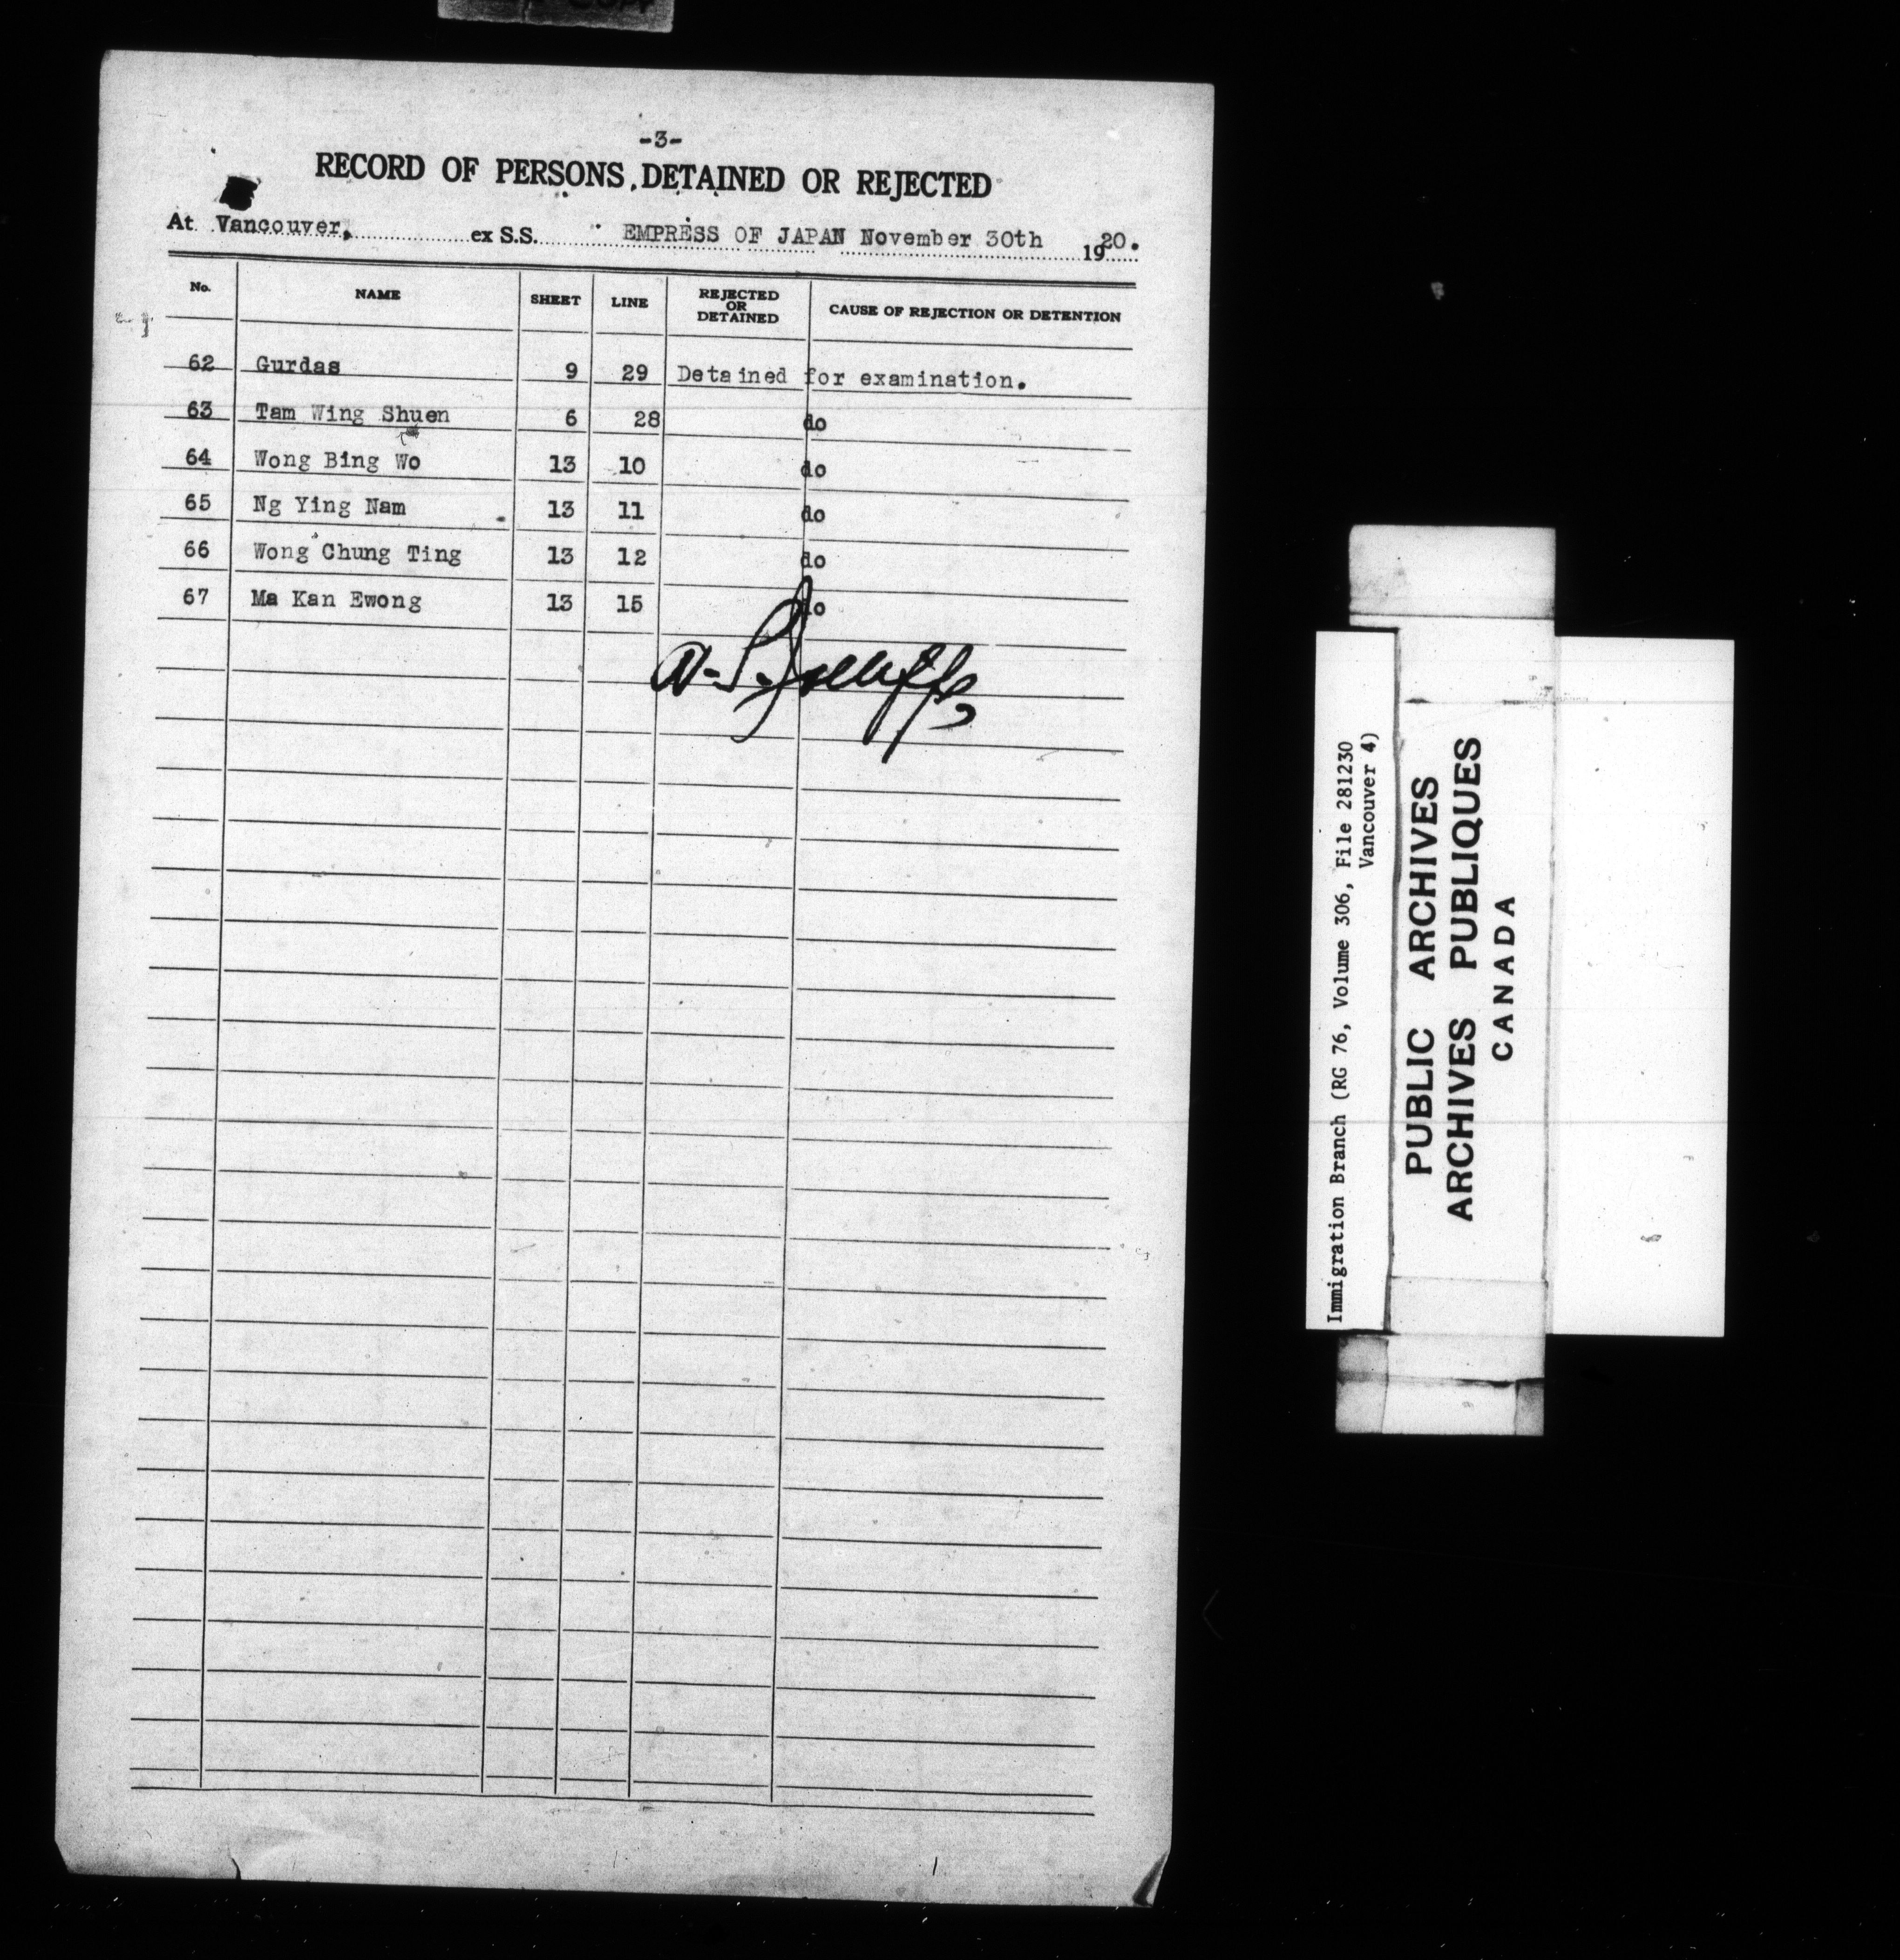 -3-
RECORD OF PERSONS DETAINED OR REJECTED
At Vancouver, ex S.S. EMPRESS OF JAPAN November 30th 1920.
No. NAME SHEET LINE REJECTED OR DETAINED CAUSE OF REJECTION OR DETENTION
62 Gurdas 9 29 Detained for examination.
63 Tam Wing Shuen 6 28 do
64 Wong Bing Wo 13 10 do
65 Ng Ying Nam 13 11 do
66 Wong Chung Ting 13 12 do
67 Ma Kan Ewong 13 15 do
Immigration Branch (RG 76, Volume 306, File 281230
Vancouver 4)
PUBLIC ARCHIVES
ARCHIVES PUBLIQUES
CANADA